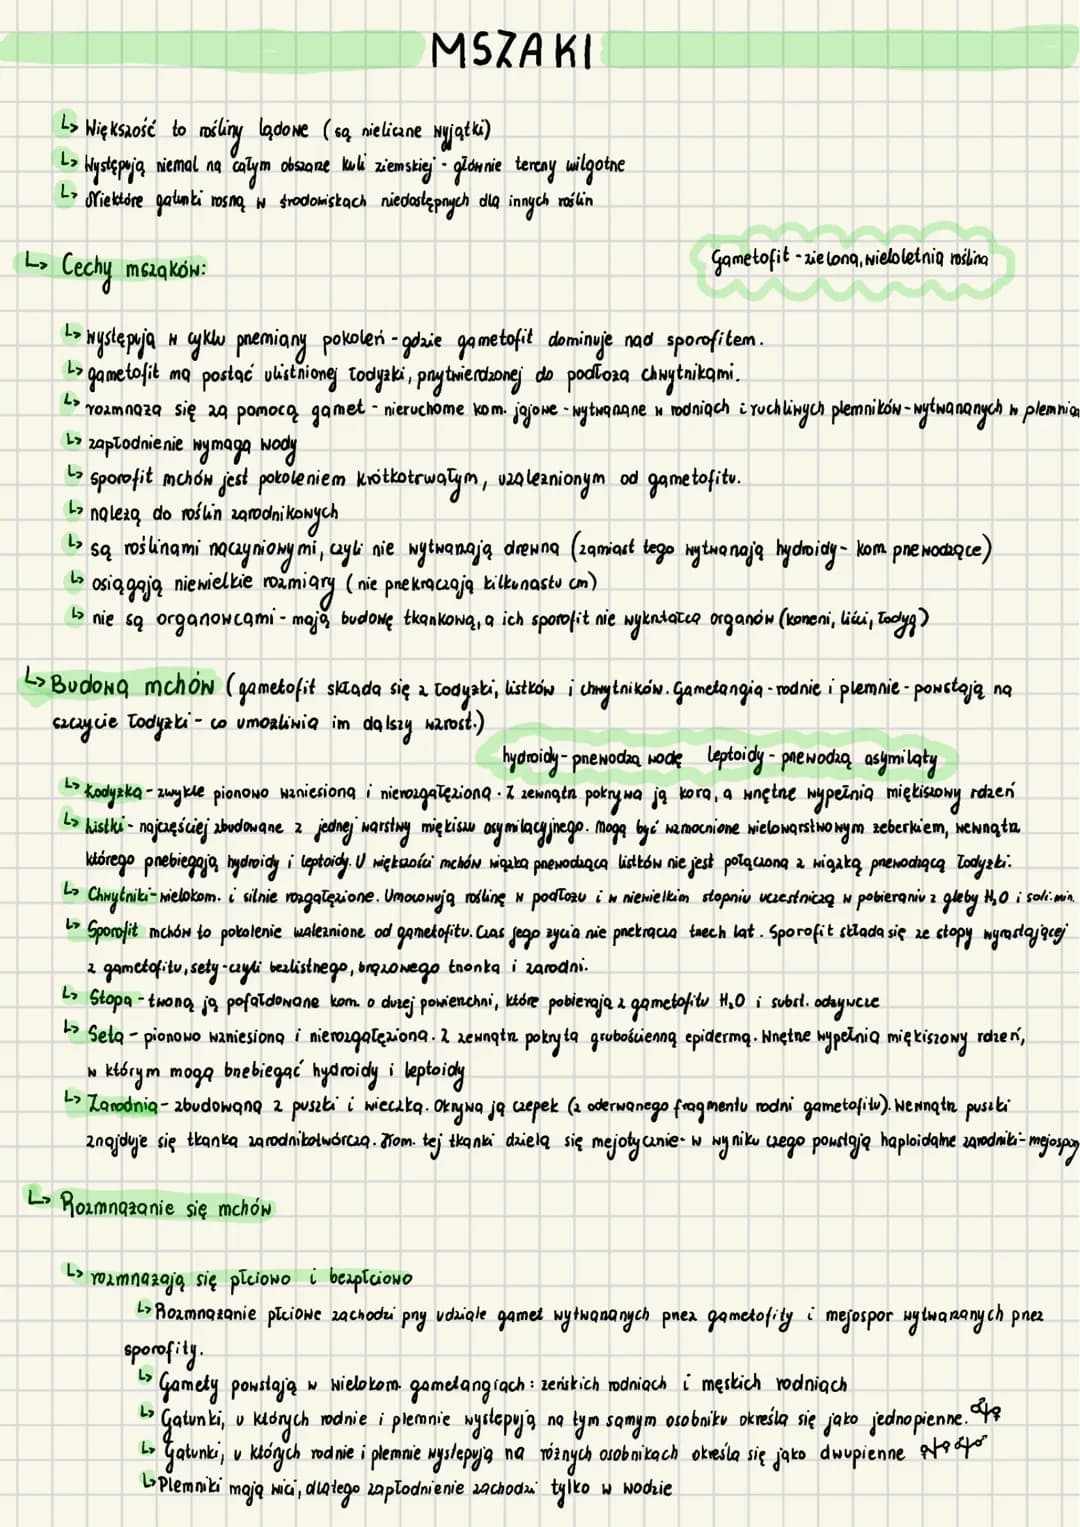 MSZAKI
↳ Większość to rośliny lądowe (są nieliczne wyjątki)
↳ Występują niemal na całym obszarze kuli ziemskiej - głównie tereny wilgotne
↳ Niektóre gatunki rosną w środowiskach niedostępnych dla innych roślin
↳ Cechy mszaków:
Gametofit - zielona, wieloletnia roślina
↳ występują w cyklu przemiany pokoleń - gdzie gametofit dominuje nad sporofitem.
↳ gametofit ma postać ulistnionej łodyżki, przytwierdzonej do podłoża chwytnikami.
↳ rozmnaża się za pomocą gamet - nieruchome kom. jajowe - wytwarzane w rodniach i ruchliwych plemników - wytwarzanych w plemnia
↳ zapłodnienie wymaga wody
↳ sporofit mchów jest pokoleniem krótkotrwałym, uzależnionym od gametofitu.
↳ należą do roślin zarodnikowych
↳ są roślinami naczyniowymi, czyli nie wytwarzają drewna (zamiast tego wytwarzają hydroidy - kom przewodzące)
↳ osiągają niewielkie rozmiary (nie przekraczają kilkunastu cm)
↳ nie są organowcami - mają budowę tkankową, a ich sporofit nie wykształca organów (korzeni, liści, łodyg)
↳ Budowa mchów (gametofit składa się z łodyżki, listków i chwytników. Gametangia - rodnie i plemnie - powstają na
szczycie łodyżki - co umożliwia im dalszy wzrost.)
hydroidy - przewodzą wodę leptoidy - przewodzą asymilaty
↳ Łodyżka - zwykle pionowo wzniesiona i nierozgałęziona. Z zewnątrz pokrywa ją kora, a wnętrze wypełnia miękiszowy rdzeń
↳ Listki - najczęściej zbudowane z jednej warstwy miękiszu asymilacyjnego. Mogą być wzmocnione wielowarstwowym żeberkiem, wewnątrz
którego przebiegają hydroidy i leptoidy. U większości mchów wiązka przewodząca listków nie jest połączona z wiązką przewodzącą łodyżki.
↳ Chwytniki - wielokom. i silnie rozgałęzione. Umocowują roślinę w podłożu i w niewielkim stopniu uczestniczą w pobieraniu z gleby H₂O i soli min.
↳ Sporofit mchów to pokolenie uzależnione od gametofitu. Czas jego życia nie przekracza trzech lat. Sporofit składa się ze stopy wyrastającej
z gametofitu, sety - czyli bezlistnego, brązowego trzonka i zarodni.
↳ Stopa - tworzą ją pofałdowane kom. o dużej powierzchni, które pobierają z gametofitu H₂O i subst. odżywcze
↳ Seta - pionowo wzniesiona i nierozgałęziona. Z zewnątrz pokryta grubościenną epidermą. Wnętrze wypełnia miękiszowy rdzeń,
w którym mogą bnebiegać hydroidy i leptoidy
↳ Zarodnia - zbudowana z puszki i wieczka. Okrywa ją czepek (z oderwanego fragmentu rodni gametofitu). Wewnątrz puszki
znajduje się tkanka zarodnikotwórcza. Kom. tej tkanki dzielą się mejotycznie - w wyniku czego powstają haploidalne zarodniki - mejospory
↳ Rozmnażanie się mchów
↳ rozmnażają się płciowo i bezpłciowo
↳ Rozmnażanie płciowe zachodzi przy udziale gamet wytwarzanych przez gametofity i mejospor wytwarzanych przez
sporofity.
↳ Gamety powstają w wielokom. gametangiach: żeńskich rodniach i męskich rodniach
↳ Gatunki, u których rodnie i plemnie występują na tym samym osobniku określa się jako jednopienne.
↳ Gatunki, u których rodnie i plemnie występują na różnych osobnikach określa się jako dwupienne
↳ Plemniki mają wici, dlatego zapłodnienie zachodzi tylko w wodzie